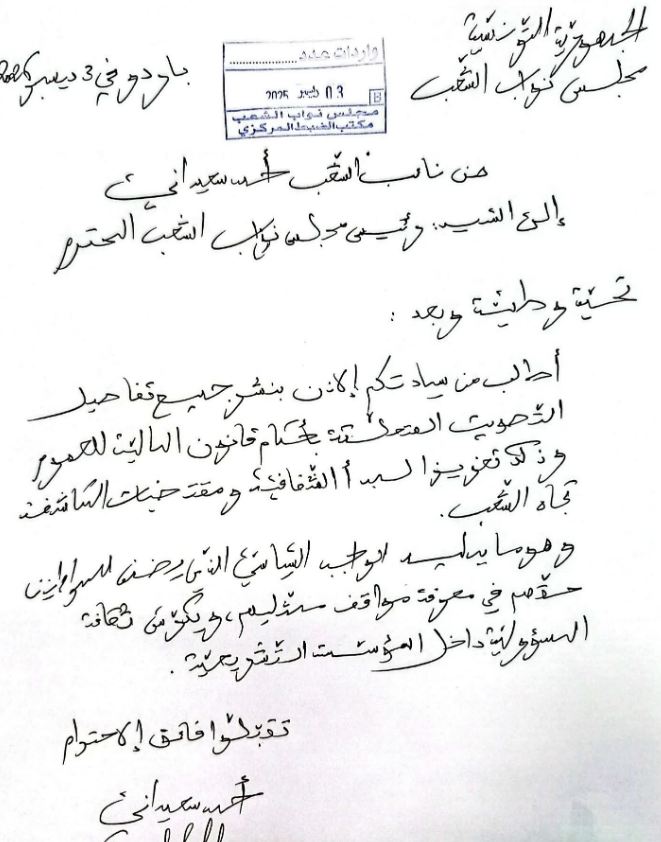 الجمهورية التونسية
مجلس نواب الشعب
باردو في 3 ديسمبر 2025
واردات عدد
03 ديسمبر 2025
مجلس نواب الشعب
مكتب الضبط المركزي
من نائب الشعب أحمد سعيداني
إلى السيد: رئيس مجلس نواب الشعب المحترم
تحية وطنية وبعد:
أطلب من سيادتكم الإذن بنشر جميع تفاصيل
التصويت المتعلقة بأحكام قانون المالية للعموم
وذلك تعزيزا لمبدأ الشفافية ومقتضيات المكاشفة
تجاه الشعب.
وهو ما يمليه الواجب السياسي الذي يضمن للمواطنين
حقهم في معرفة مواقف ممثليهم، ويكرس ثقافة
المسؤولية داخل المؤسسة التشريعية.
تقبلوا فائق الاحترام
أحمد سعيداني